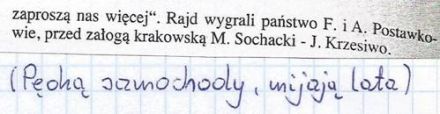 zaproszą nas więcej“. Rajd wygrali państwo F. i A. Postawko-
wie, przed załogą krakowską M. Sochacki - J. Krzesiwo.
(Pędzą samochody, mijają lata)